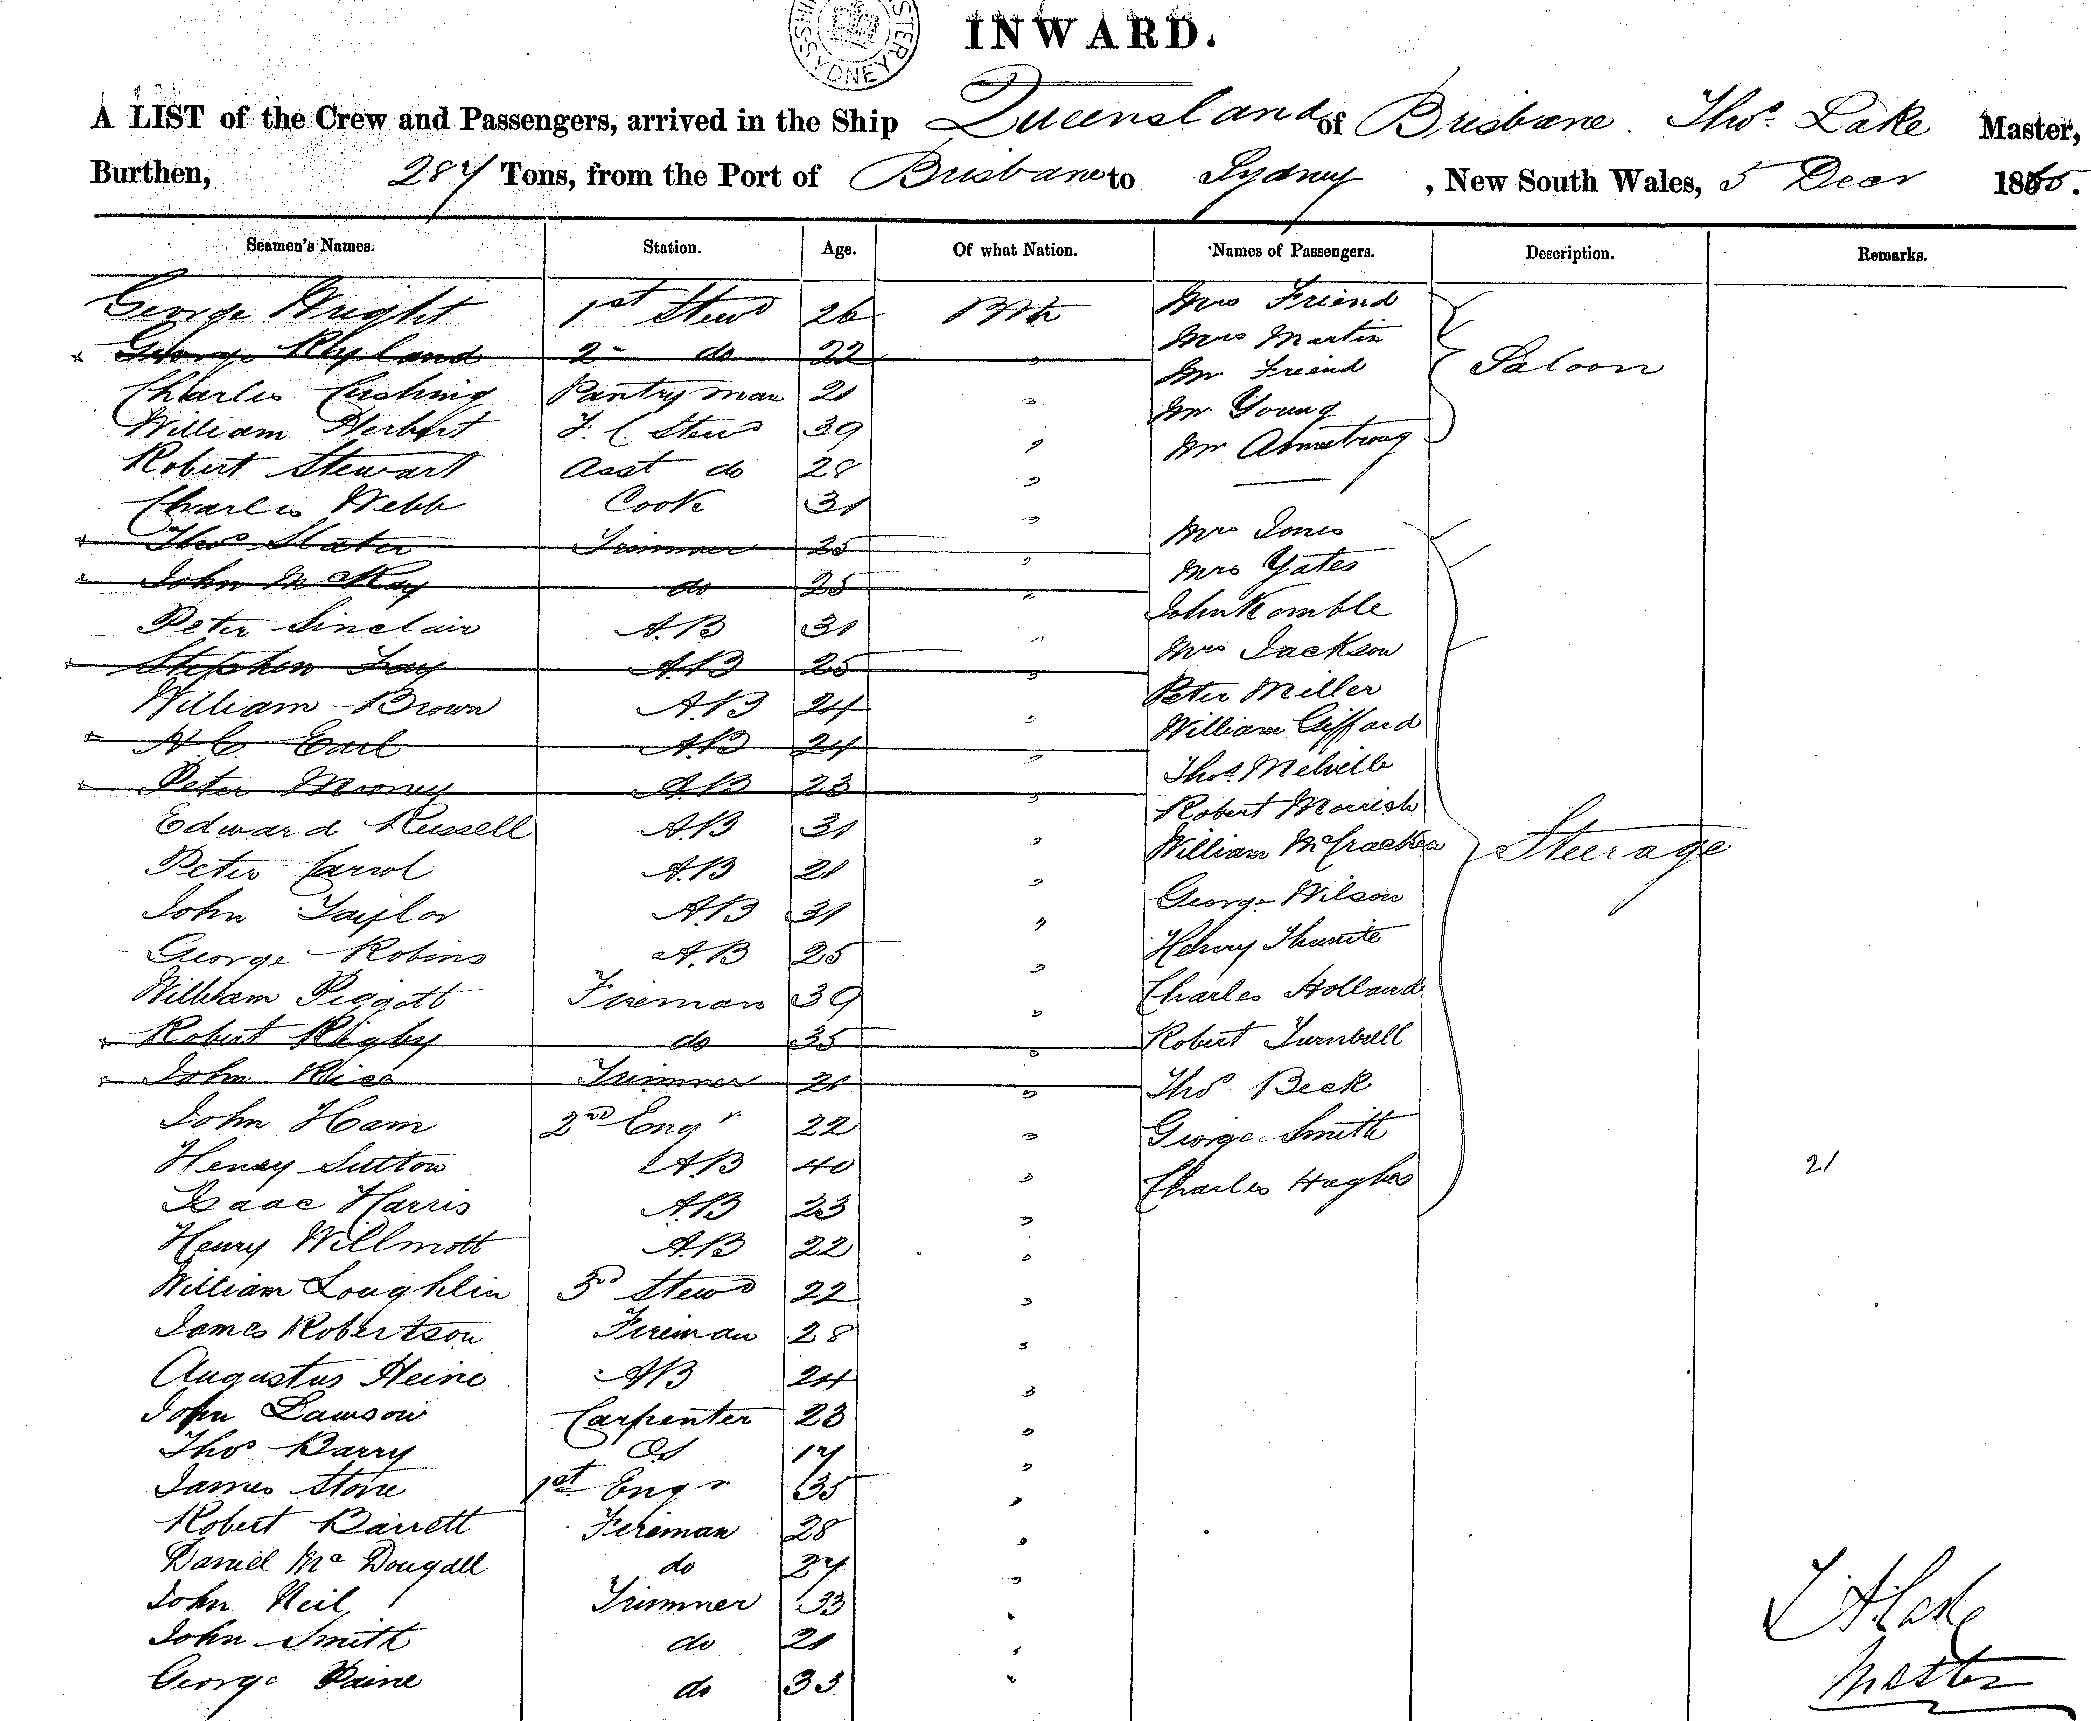 INWARD.
A LIST of the Crew and Passengers, arrived in the Ship Queensland of Brisbane Thos. Lake Master,
Burthen, 287 Tons, from the Port of Brisbane to Sydney, New South Wales, 5 Decr 1865.
Seamen's Names. Station. Age. Of what Nation. Names of Passengers. Description. Remarks.
George Wright 1st Stewd 26 Brit Mrs Friend
George Ryland 2 do 22 " Mrs Martin
Charles Cushing Pantryman 21 " Mr Friend Saloon
William Herbert F. C Stewd 39 " Mr Young
Robert Stewart Asst do 28 " Mr Armstrong
Charles Webb Cook 31 "
Thos Slater Trimmer 25 " Mrs Jones
John McKay do 25 " Mrs Yates
Peter Sinclair A.B 31 " John Kemble
Stephen Fay AB 25 " Mrs Jackson
William Brown A.B 24 " Peter Miller
Earl A.B 24 " William Gifford
Peter Mooney A.B 23 " Thos Melville
Edward Russell A.B 31 " Robert Morrish
Peter Carrol A.B 21 " William McCracken Steerage
John Taylor A.B 31 " George Wilson
George Robins A.B 25 " Henry
William Piggott Fireman 39 " Charles Holland
Robert Rigby do 35 " Robert Turnbull
John Rice Trimmer 21 " Thos Beck
John Ham 2nd Engr 22 " George Smith
Henry Sutton AB 40 " Charles Hughes 21
Isaac Harris A.B 23 "
Henry Willmott A.B 22 "
William Loughlin 3d Stewd 22 "
James Robertson Fireman 28 "
Augustus Heine AB 24 "
John Lawson Carpenter 23 "
Thos Barry OS 17 "
James Stone 1st Engr 35 "
Robert Barrett Fireman 28 "
Daniel McDougall do 27 "
John Neil Trimmer 33 "
John Smith do 21 "
George Paine do 33 "
T A Lake
Master